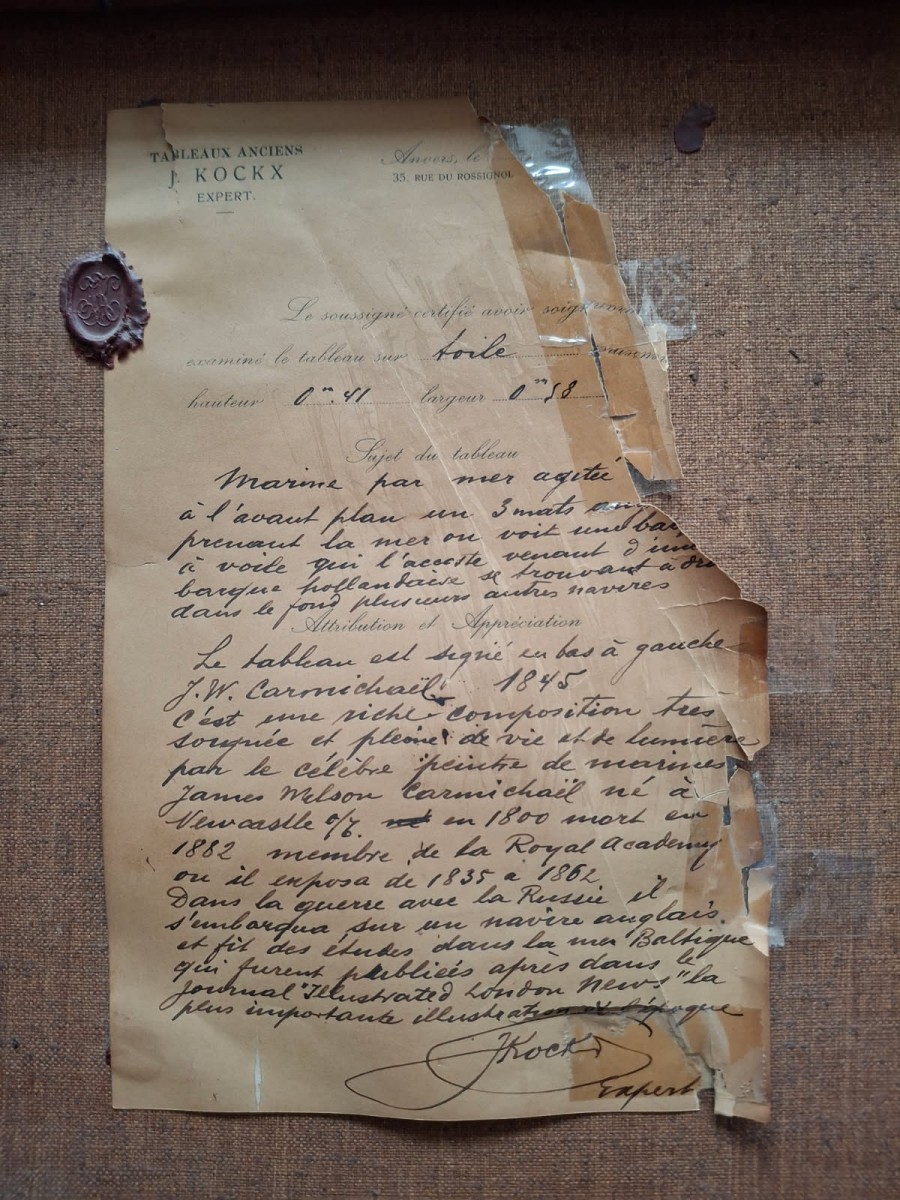 TABLEAUX ANCIENS
J. KOCKX
EXPERT.
Anvers, le
35, RUE DU ROSSIGNOL
Le soussigné certifié avoir
examiné le tableau sur toile
hauteur 0m.41 largeur 0m58
Sujet du tableau
Marine par mer agitée
à l'avant plan un 3 mats
prenant la mer on voit une
à voile qui l'acoste venant d'une
barque hollandaise se trouvant à
dans le fond plusieurs autres navires
Attribution et Appréciation
Le tableau est signé en bas à gauche
J.W. Carmichaël 1845
C'est une riche composition très
soignée et pleine de vie et de lumière
par le célèbre peintre de marines
James Wilson Carmichaël né à
Newcastle o/T. en 1800 mort en
1882 membre de la Royal Academy
ou il exposa de 1835 à 1862
Dans la guerre avec la Russie il
s'embarqua sur un navire anglais.
et fit des études dans la mer Baltique
qui furent publiées après dans le
journal "Illustrated London News" la
plus importante illustration de l'époque
JKockx
Expert